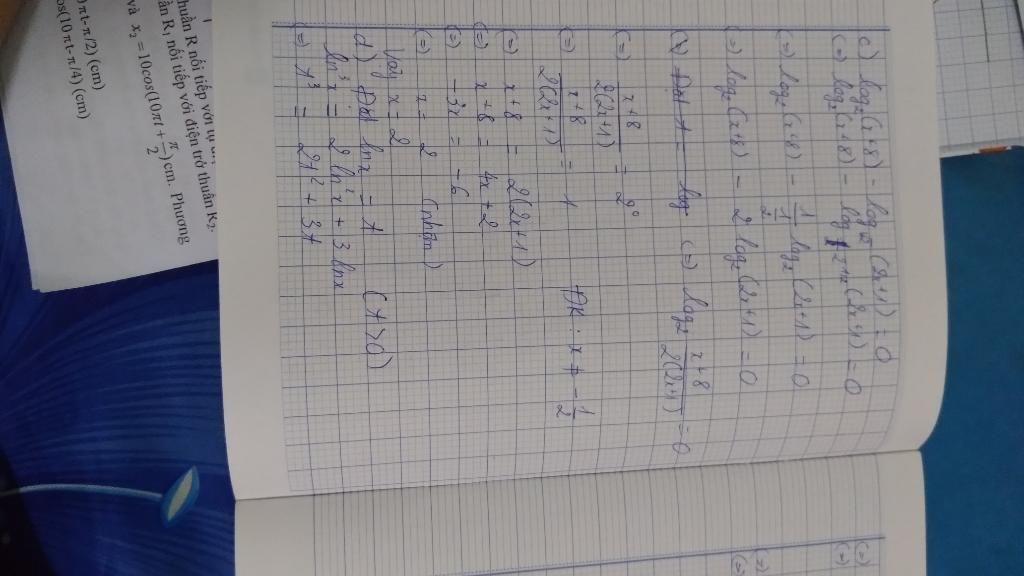 c) log₂(x+8) - log√2 (2x+1) = 0
(=) log₂(x+8) - log 2^1/2 (2x+1) = 0
(=) log₂(x+8) - 1/(1/2) log₂(2x+1) = 0
(=) log₂(x+8) - 2 log₂(2x+1) = 0
Đặt t = log (=) log₂ (x+8)/(2(2x+1)) = 0
(=) (x+8)/(2(2x+1)) = 2⁰
(=) (x+8)/(2(2x+1)) = 1 ĐK: x ≠ -1/2
(=) x+8 = 2(2x+1)
(=) x+8 = 4x+2
(=) -3x = -6
(=) x = 2 (nhận)
Vậy x = 2
d) Đặt lnx = t (t>0)
ln³x = 2ln²x + 3lnx
(=) t³ = 2t² + 3t
huần R nối tiếp với tụ
ần R₁ nối tiếp với điện trở thuần R₂.
và x₂ = 10cos(10πt + π/2) cm. Phương
πt-π/2) (cm)
os(10πt-π/4) (cm)
(=)
(=)
(=)
(=)